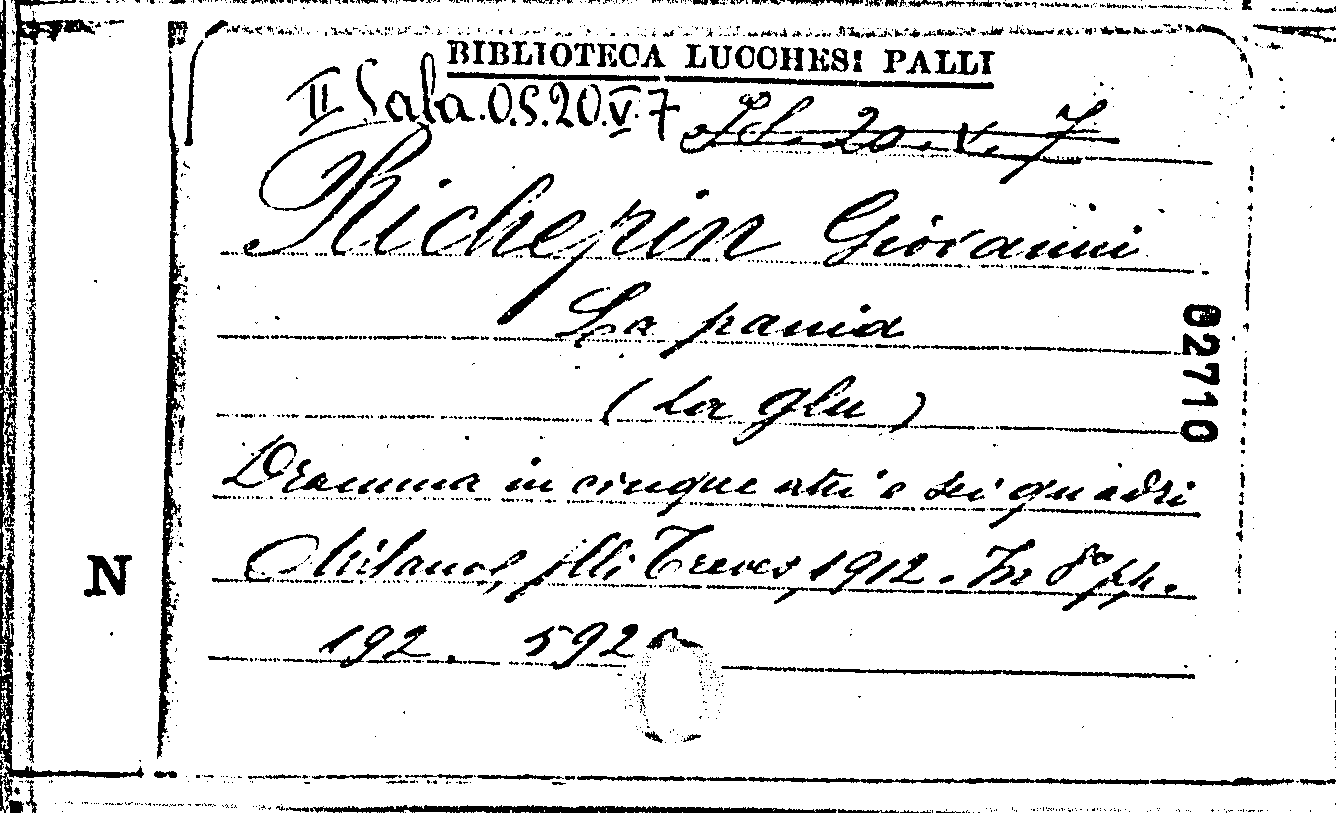 BIBLIOTECA LUCCHESI PALLI
II Sala.O.S.20.V.7 20.V.7
Richepin Giovanni
La pania
(La glu)
Dramma in cinque atti e sei quadri
Milano, flli Treves, 1912. In 8° pp.
192. 592
02710
N